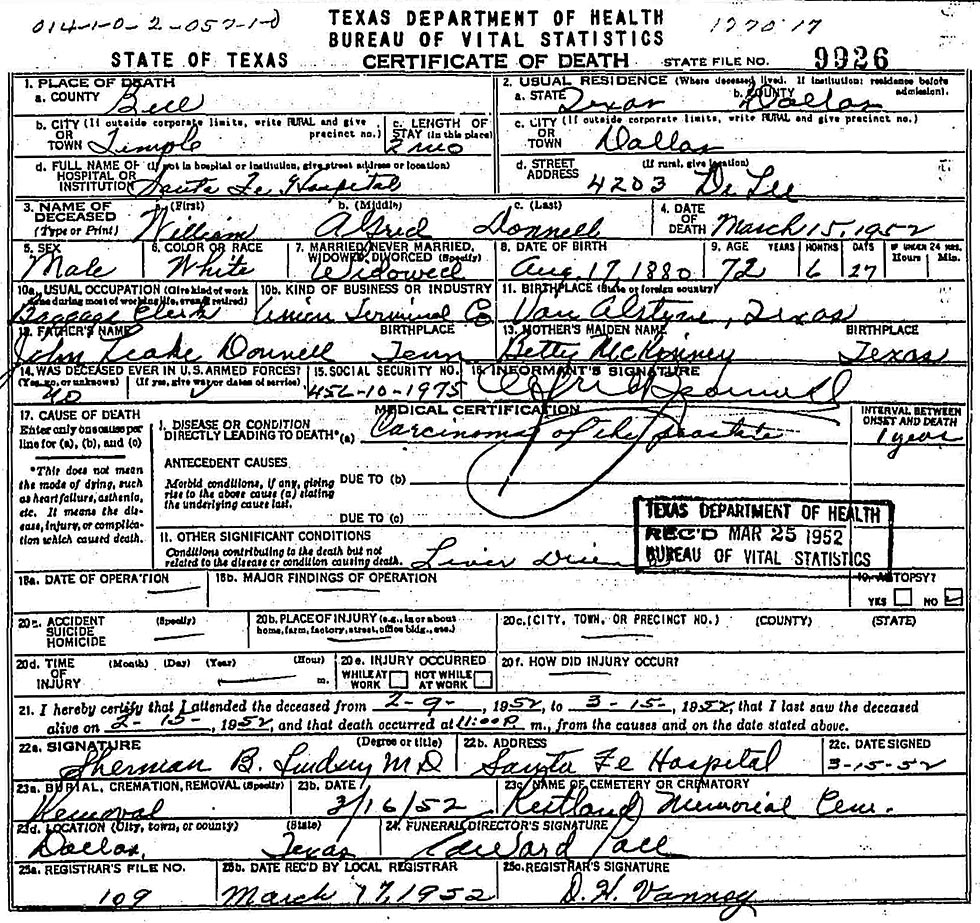 014-1-0-2-057-1-0
TEXAS DEPARTMENT OF HEALTH
BUREAU OF VITAL STATISTICS
177017
STATE OF TEXAS CERTIFICATE OF DEATH STATE FILE NO. 9926
1. PLACE OF DEATH
a. COUNTY Bell
2. USUAL RESIDENCE (Where deceased lived. If institution: residence before admission).
a. STATE Texas b. COUNTY Dallas
b. CITY (If outside corporate limits, write RURAL and give precinct no.) OR TOWN Temple
c. LENGTH OF STAY (in this place) 2 mo
c. CITY (If outside corporate limits, write RURAL and give precinct no.) OR TOWN Dallas
d. FULL NAME OF (If not in hospital or institution, give street address or location) HOSPITAL OR INSTITUTION Santa Fe Hospital
d. STREET ADDRESS (If rural, give location) 4203 De Lee
3. NAME OF DECEASED (Type or Print) a. (First) William b. (Middle) Alfred c. (Last) Donnell
4. DATE OF DEATH March 15, 1952
5. SEX Male
6. COLOR OR RACE White
7. MARRIED, NEVER MARRIED, WIDOWED, DIVORCED (Specify) Widowed
8. DATE OF BIRTH Aug 17, 1880
9. AGE YEARS 72 MONTHS 6 DAYS 27 IF UNDER 24 HRS. Hours Min.
10a. USUAL OCCUPATION (Give kind of work done during most of working life, even if retired) Baggage Clerk
10b. KIND OF BUSINESS OR INDUSTRY Union Terminal Co
11. BIRTHPLACE (State or foreign country) Van Alstyne, Texas
12. FATHER'S NAME John Leake Donnell BIRTHPLACE Tenn
13. MOTHER'S MAIDEN NAME Betty McKinney BIRTHPLACE Texas
14. WAS DECEASED EVER IN U.S. ARMED FORCES? (Yes, no, or unknown) no (If yes, give war or dates of service)
15. SOCIAL SECURITY NO. 456-10-1975
16. INFORMANT'S SIGNATURE
MEDICAL CERTIFICATION
17. CAUSE OF DEATH
Enter only one cause per line for (a), (b), and (c)
*This does not mean the mode of dying, such as heart failure, asthenia, etc. It means the disease, injury, or complication which caused death.
I. DISEASE OR CONDITION DIRECTLY LEADING TO DEATH* (a) Carcinoma of the prostate
INTERVAL BETWEEN ONSET AND DEATH 1 year
ANTECEDENT CAUSES
Morbid conditions, if any, giving rise to the above cause (a) stating the underlying cause last.
DUE TO (b)
DUE TO (c)
TEXAS DEPARTMENT OF HEALTH
REC'D MAR 25 1952
BUREAU OF VITAL STATISTICS
II. OTHER SIGNIFICANT CONDITIONS
Conditions contributing to the death but not related to the disease or condition causing death. Liver
18a. DATE OF OPERATION
18b. MAJOR FINDINGS OF OPERATION
19. AUTOPSY? YES NO
20a. ACCIDENT SUICIDE HOMICIDE (Specify)
20b. PLACE OF INJURY (e.g., in or about home, farm, factory, street, office bldg., etc.)
20c. (CITY, TOWN, OR PRECINCT NO.) (COUNTY) (STATE)
20d. TIME OF INJURY (Month) (Day) (Year) (Hour) m.
20e. INJURY OCCURRED WHILE AT WORK NOT WHILE AT WORK
20f. HOW DID INJURY OCCUR?
21. I hereby certify that I attended the deceased from 2-9-, 1952, to 3-15-, 1952, that I last saw the deceased
alive on 2-15-, 1952, and that death occurred at 11:00 P m., from the causes and on the date stated above.
22a. SIGNATURE (Degree or title) Sherman B. Lindsey MD
22b. ADDRESS Santa Fe Hospital
22c. DATE SIGNED 3-15-52
23a. BURIAL, CREMATION, REMOVAL (Specify) Removal
23b. DATE 3/16/52
23c. NAME OF CEMETERY OR CREMATORY Restland Memorial Cem.
23d. LOCATION (City, town, or county) (State) Dallas, Texas
24. FUNERAL DIRECTOR'S SIGNATURE Edward
25a. REGISTRAR'S FILE NO. 109
25b. DATE REC'D BY LOCAL REGISTRAR March 17, 1952
25c. REGISTRAR'S SIGNATURE D. H. Vanney